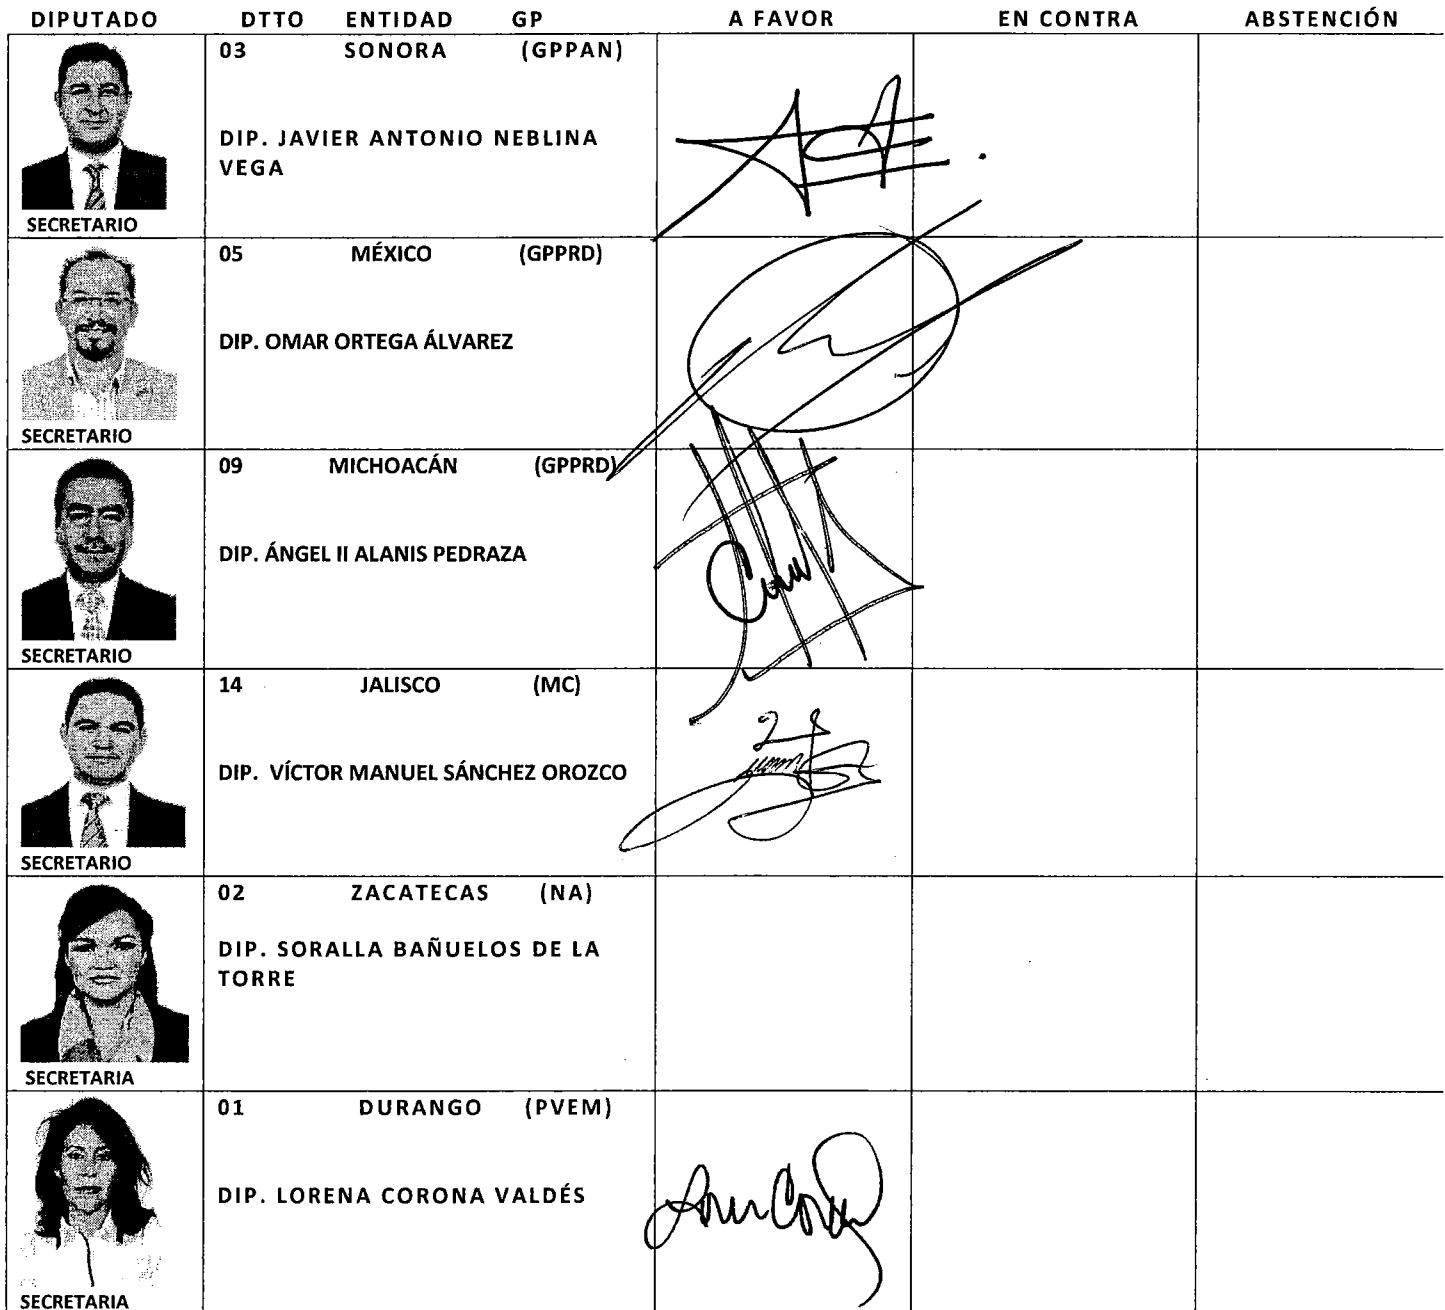 DIPUTADO DTTO ENTIDAD GP A FAVOR EN CONTRA ABSTENCIÓN
03 SONORA (GPPAN)
DIP. JAVIER ANTONIO NEBLINA
VEGA
SECRETARIO
05 MÉXICO (GPPRD)
DIP. OMAR ORTEGA ÁLVAREZ
SECRETARIO
09 MICHOACÁN (GPPRD)
DIP. ÁNGEL II ALANIS PEDRAZA
SECRETARIO
14 JALISCO (MC)
DIP. VÍCTOR MANUEL SÁNCHEZ OROZCO
SECRETARIO
02 ZACATECAS (NA)
DIP. SORALLA BAÑUELOS DE LA
TORRE
SECRETARIA
01 DURANGO (PVEM)
DIP. LORENA CORONA VALDÉS
SECRETARIA